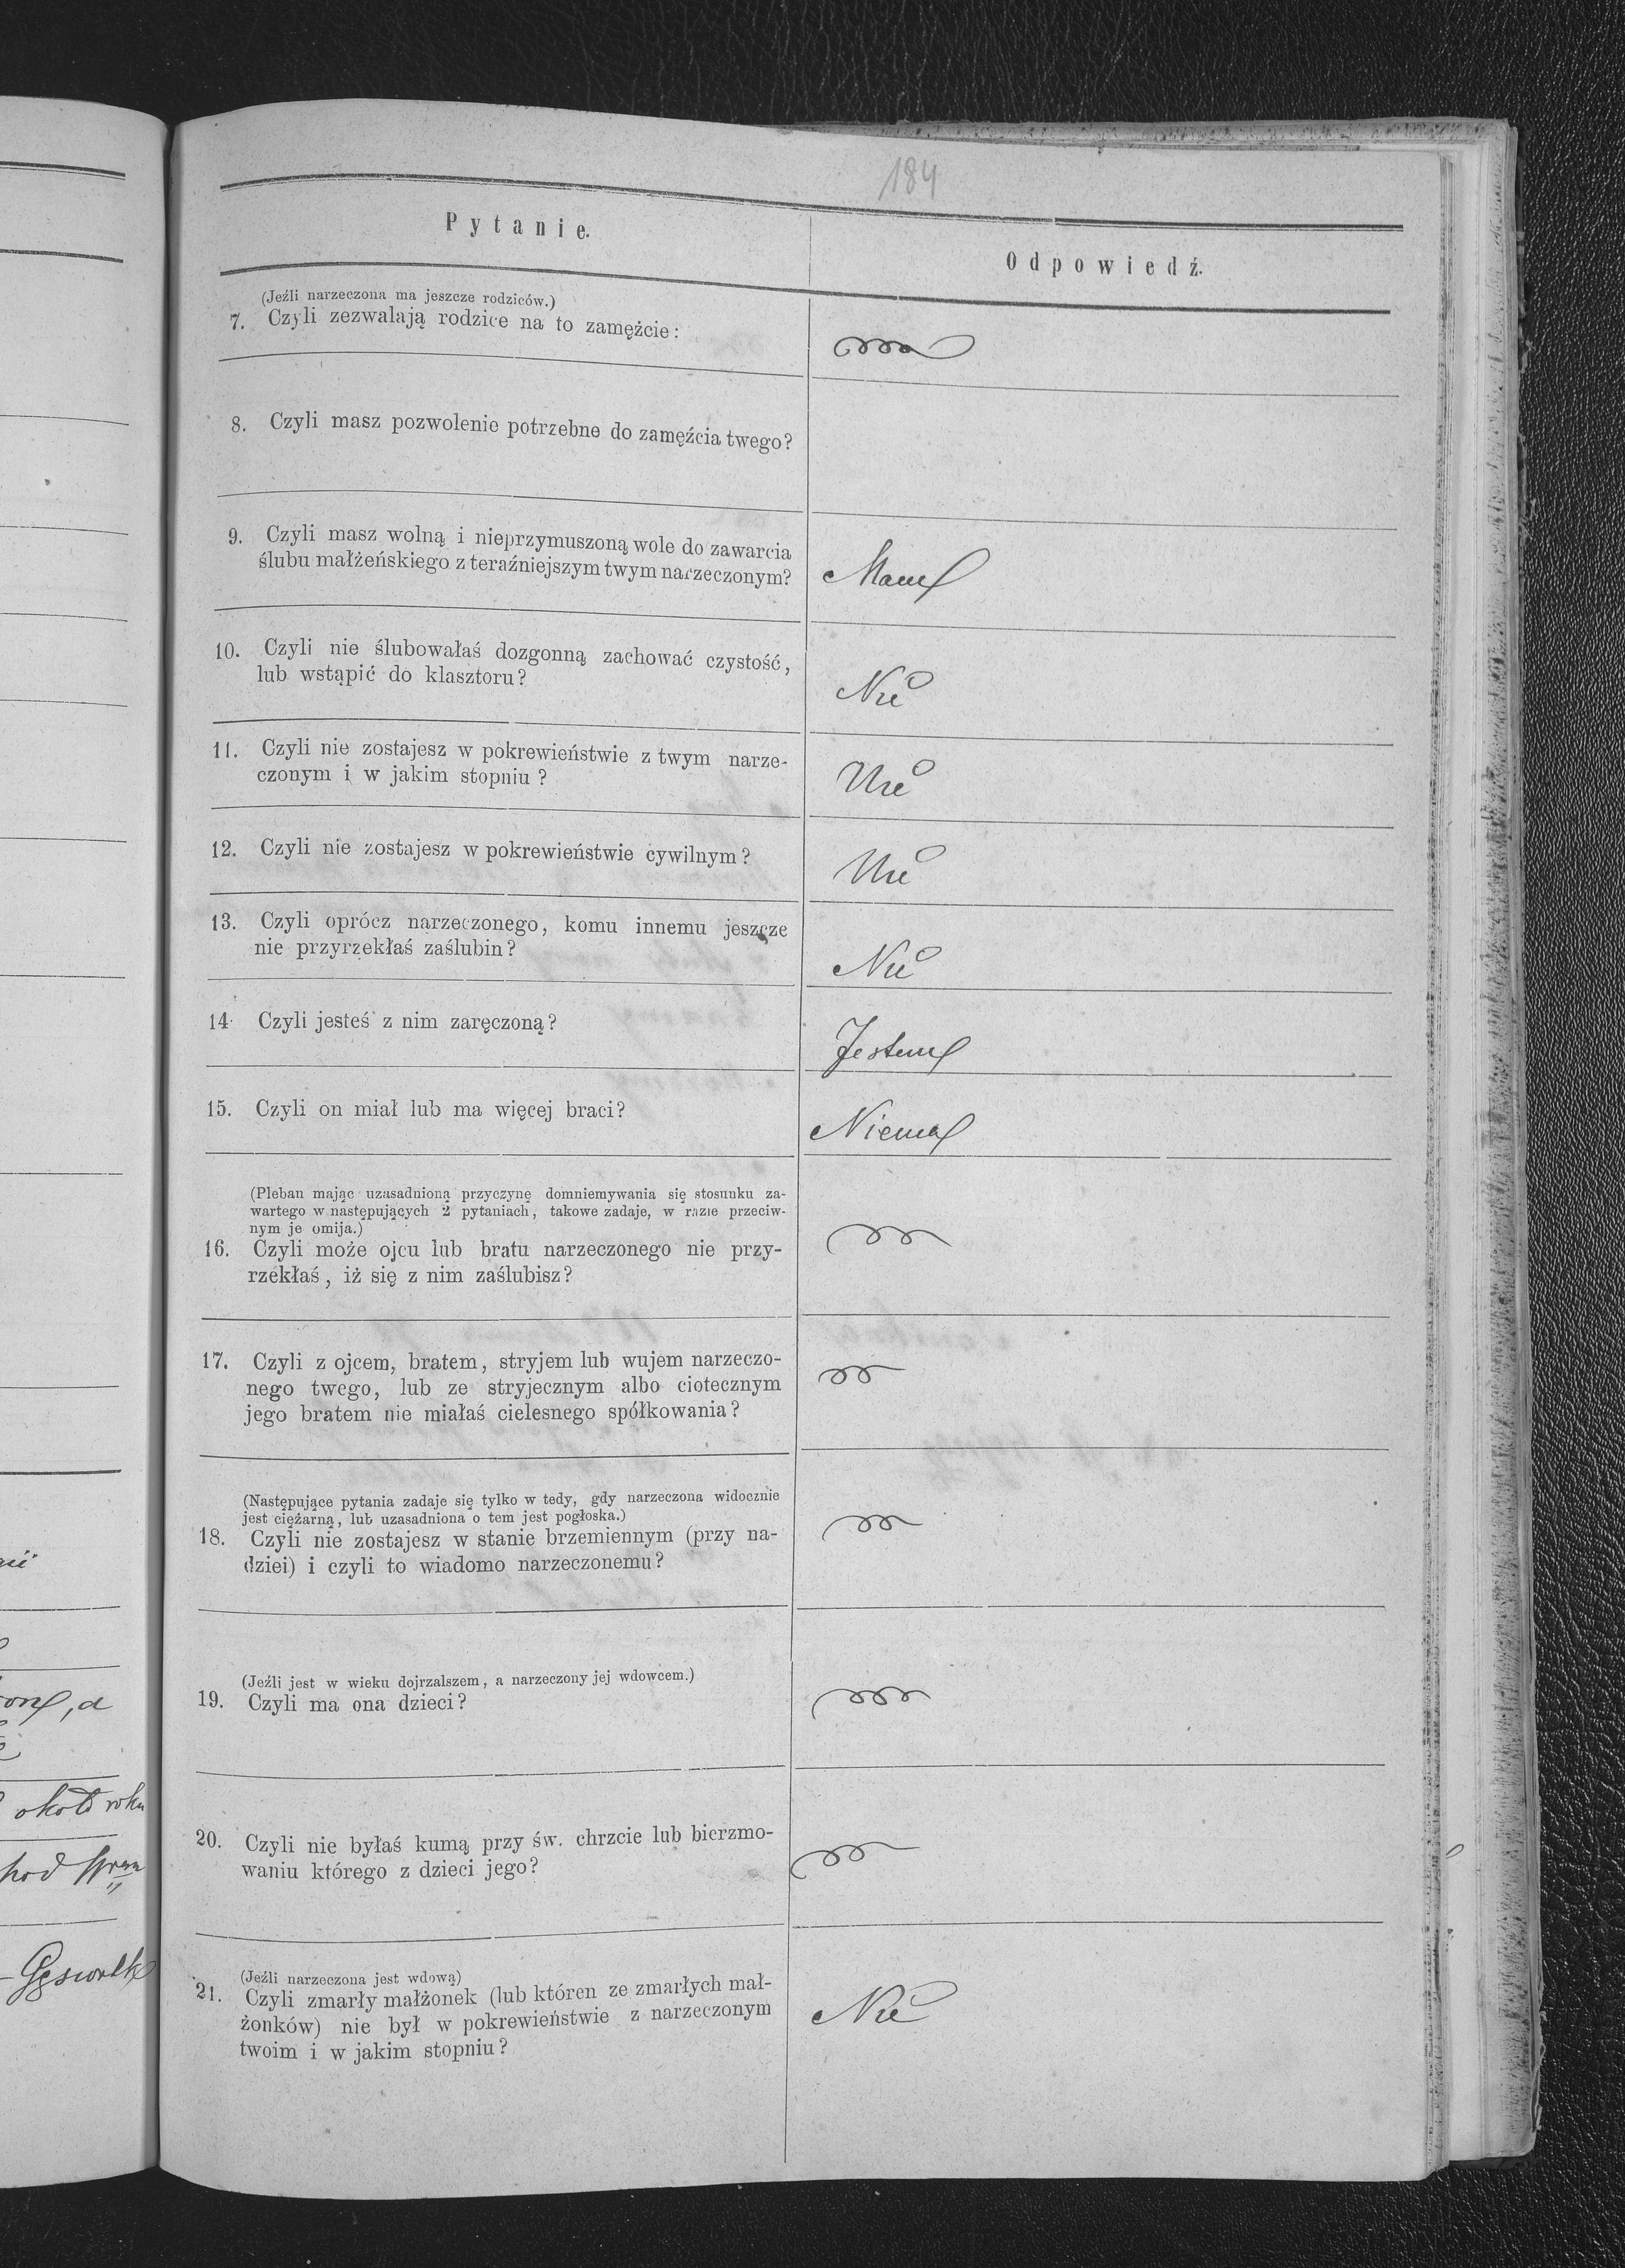 184
Pytanie.
Odpowiedź.
(Jeźli narzeczona ma jeszcze rodziców.)
7. Czyli zezwalają rodzice na to zamężcie:
8. Czyli masz pozwolenie potrzebne do zamęźcia twego?
9. Czyli masz wolną i nieprzymuszoną wole do zawarcia
ślubu małżeńskiego z teraźniejszym twym narzeczonym?
Mam
10. Czyli nie ślubowałaś dozgonną zachować czystość,
lub wstąpić do klasztoru?
Nie
11. Czyli nie zostajesz w pokrewieństwie z twym narze-
czonym i w jakim stopniu?
Nie
12. Czyli nie zostajesz w pokrewieństwie cywilnym?
Nie
13. Czyli oprócz narzeczonego, komu innemu jeszcze
nie przyrzekłaś zaślubin?
Nie
14. Czyli jesteś z nim zaręczoną?
Jestem
15. Czyli on miał lub ma więcej braci?
Niema
(Pleban mając uzasadnioną przyczynę domniemywania się stosunku za-
wartego w następujących 2 pytaniach, takowe zadaje, w razie przeciw-
nym je omija.)
16. Czyli może ojcu lub bratu narzeczonego nie przy-
rzekłaś, iż się z nim zaślubisz?
17. Czyli z ojcem, bratem, stryjem lub wujem narzeczo-
nego twego, lub ze stryjecznym albo ciotecznym
jego bratem nie miałaś cielesnego spółkowania?
(Następujące pytania zadaje się tylko w tedy, gdy narzeczona widocznie
jest ciężarną, lub uzasadniona o tem jest pogłoska.)
18. Czyli nie zostajesz w stanie brzemiennym (przy na-
dziei) i czyli to wiadomo narzeczonemu?
(Jeźli jest w wieku dojrzalszem, a narzeczony jej wdowcem.)
19. Czyli ma ona dzieci?
20. Czyli nie byłaś kumą przy św. chrzcie lub bierzmo-
waniu którego z dzieci jego?
(Jeźli narzeczona jest wdową)
21. Czyli zmarły małżonek (lub któren ze zmarłych mał-
żonków) nie był w pokrewieństwie z narzeczonym
twoim i w jakim stopniu?
Nie
około roku